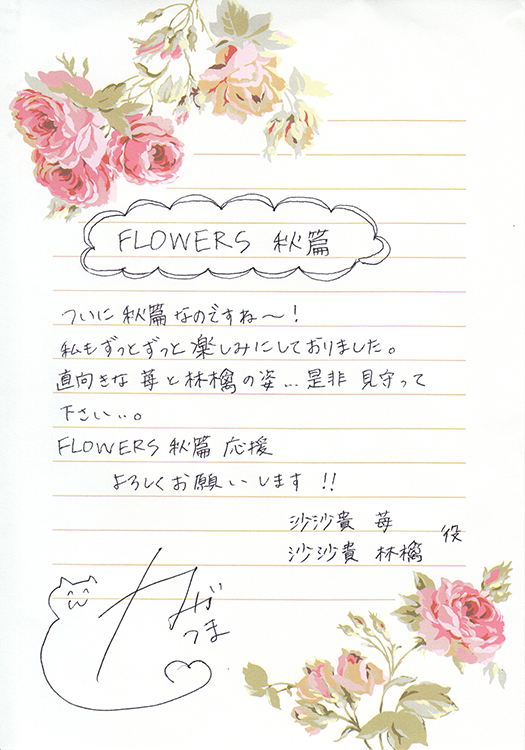 FLOWERS 秋篇
ついに 秋篇なのですね〜！
私もずっとずっと楽しみにしておりました。
直向きな 苺と林檎の姿…是非 見守って
下さい…。
FLOWERS 秋篇 応援
よろしくお願いします !!
沙沙貴 苺 役
沙沙貴 林檎